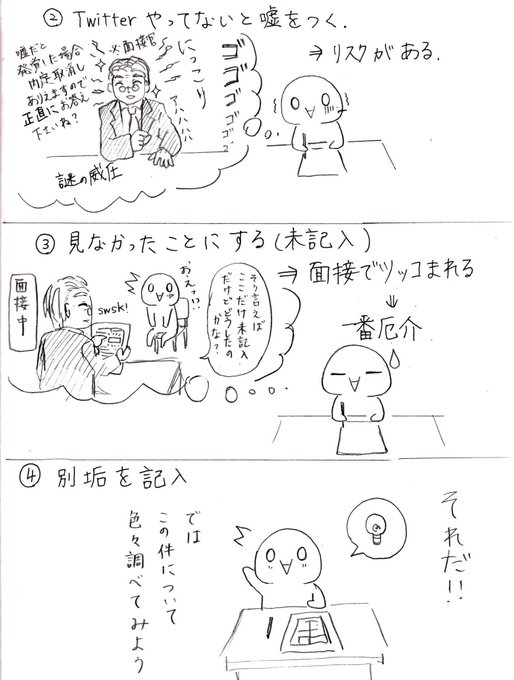 ② Twitterやってないと嘘をつく.
⇒リスクがある.
ゴゴゴゴゴゴ
にっこり
アハハハハ
※面接官
嘘だと
発覚した場合
内定取消し
ありえますので
正直にお答え
下さいね?
謎の威圧
③ 見なかったことにする(未記入)
⇒ 面接でツッコまれる
⇓
一番厄介
そう言えば
ここだけ未記入
だけどどうしたの
かな?
おえっ!?
swsk!
面接中
④ 別垢を記入
それだ!!
では
この件について
色々調べてみよう